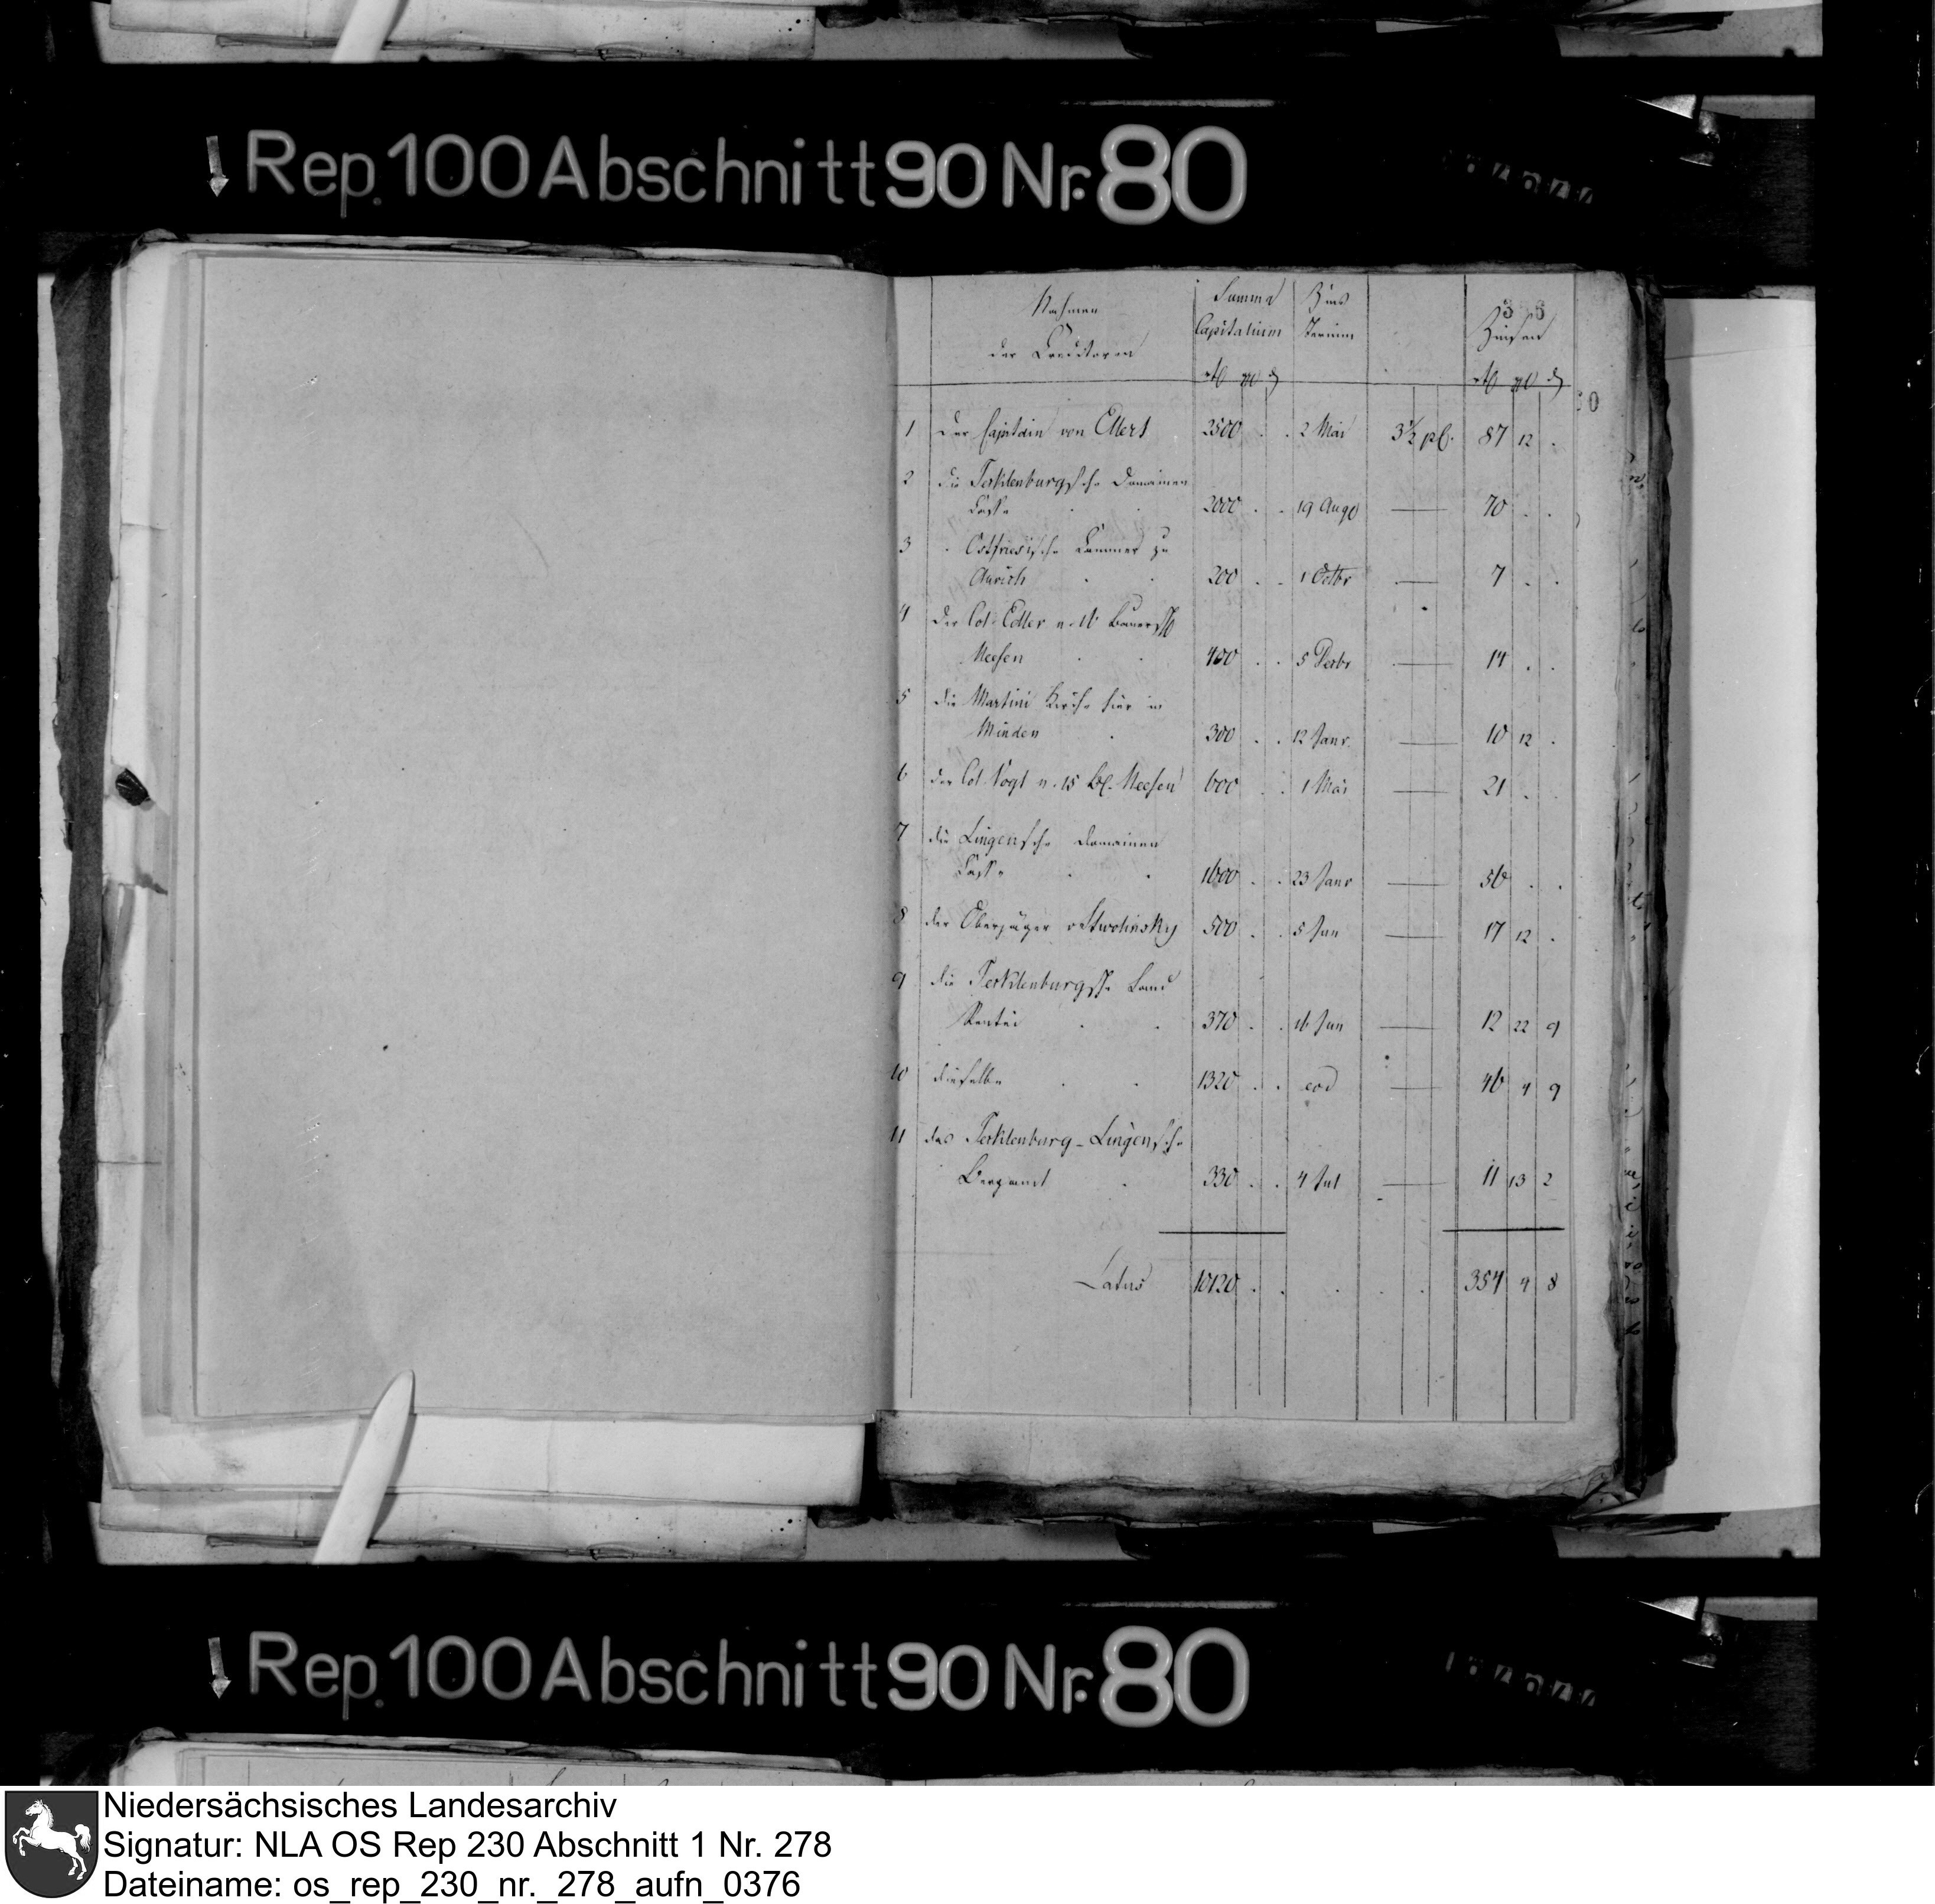 Rep. 100 Abschnitt 90 Nr. 80
Nahmen der Creditoren | Summa Capitalium | Zins Termin | Zinsen
1 der Capitain von Ellers 2500 . . 2 Mai 3½ pC. 87 12 .
2 die Tecklenburgsche Domainen
Casse . . 2000 . . 19 Aug — 70 . .
3 . Ostfriesische Cammer zu
Aurich . . 200 . . 1 Octbr — 7 . .
4 der Col. Edler n. 16 Bauersch
Neesen . . 400 . . 5 Decbr — 14 . .
5 die Martini Kirche hier in
Minden . 300 . . 12 Janr. — 10 12 .
6 der Col. Vogt n. 15 B. Neesen 600 . . 1 Mai — 21 . .
7 die Lingensche Domainen
Casse . . 1600 . . 23 Janr — 56 . .
8 der Oberjäger v Stwolinsky 500 . . 5 Jun — 17 12 .
9 die Tecklenburgsche Land
Rentei . . 370 . . 16 Jun — 12 22 9
10 dieselbe . . 1320 . . eod — 46 4 9
11 das Tecklenburg-Lingensche
Bergamt . 330 . . 4 Jul — 11 13 2
Latus 10120 . . . . . 354 4 8
Rep. 100 Abschnitt 90 Nr. 80
Niedersächsisches Landesarchiv
Signatur: NLA OS Rep 230 Abschnitt 1 Nr. 278
Dateiname: os_rep_230_nr._278_aufn_0376